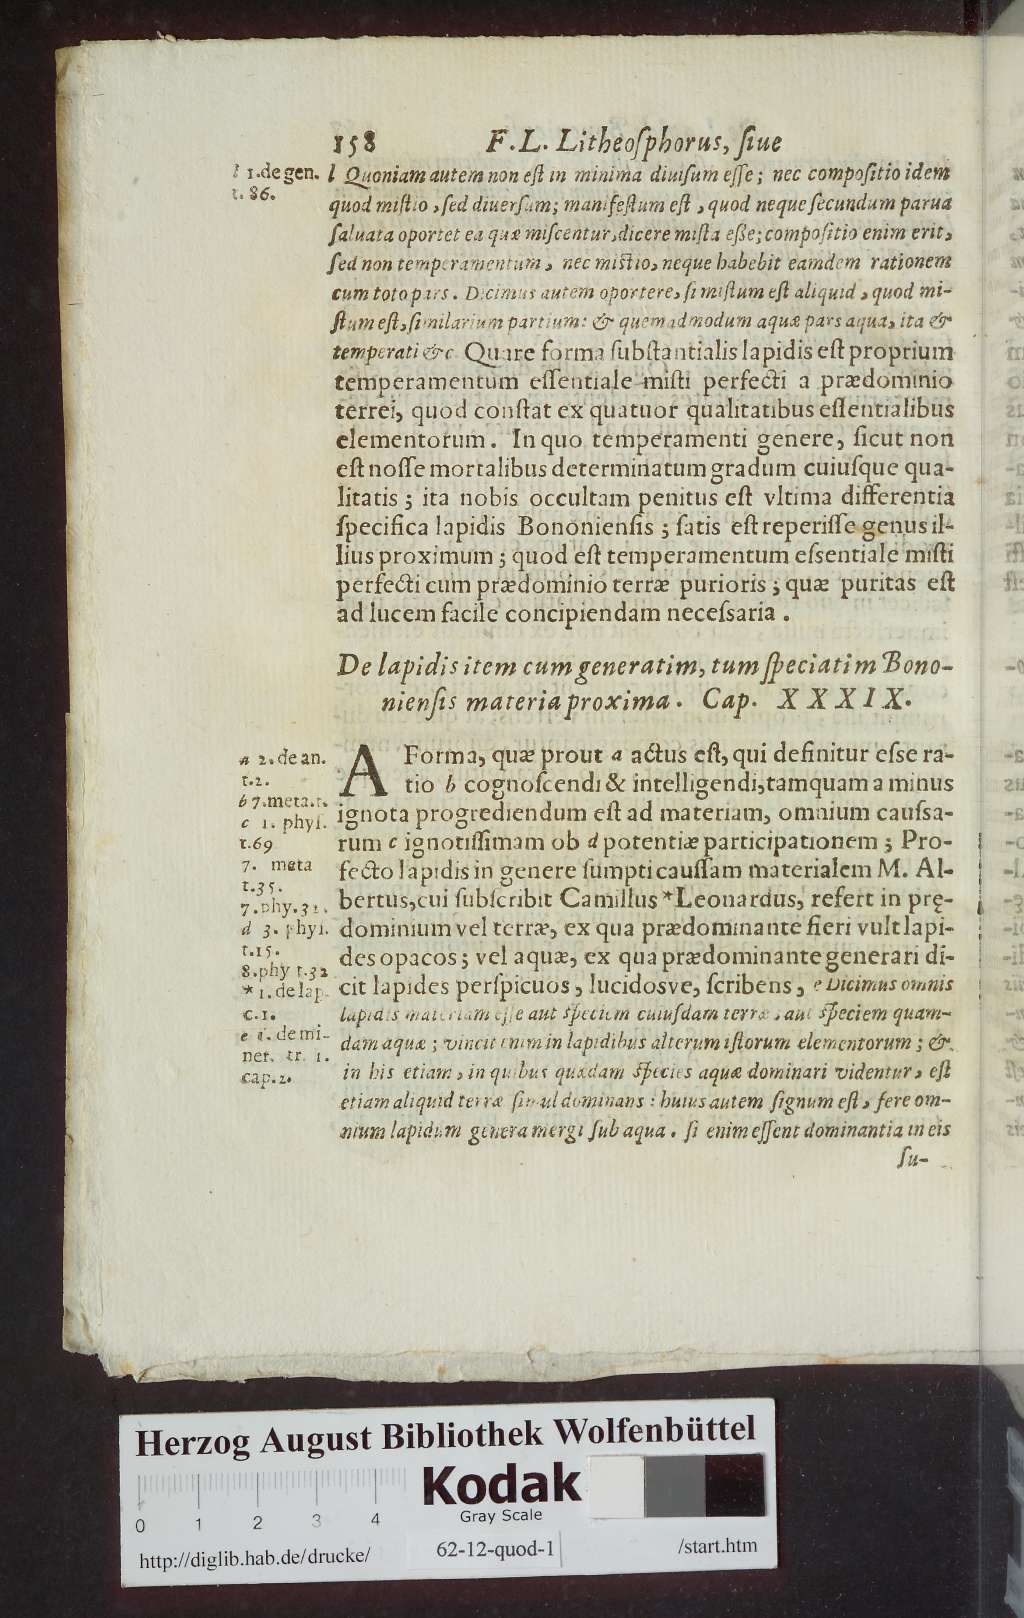 158 F. L. Litheoſphorus, ſiue
l 1.de gen. t. 86.
l Quoniam autem non eſt in minima diuiſum eſſe; nec compoſitio idem
quod miſtio, ſed diuerſum; manifeſtum eſt, quod neque ſecundum parua
ſaluata oportet ea quæ miſcentur, dicere miſta eße; compoſitio enim erit,
ſed non temperamentum, nec miſtio, neque habebit eamdem rationem
cum toto pars. Dicimus autem oportere, ſi miſtum eſt aliquid, quod mi-
ſtum eſt, ſimilarium partium: & quemadmodum aquæ pars aqua, ita &
temperati &c. Quare forma ſubſtantialis lapidis eſt proprium
temperamentum eſſentiale miſti perfecti a prædominio
terrei, quod conſtat ex quatuor qualitatibus eſſentialibus
elementorum. In quo temperamenti genere, ſicut non
eſt noſſe mortalibus determinatum gradum cuiuſque qua-
litatis; ita nobis occultam penitus eſt vltima differentia
ſpecifica lapidis Bononienſis; ſatis eſt reperiſſe genus il-
lius proximum; quod eſt temperamentum eſsentiale miſti
perfecti cum prædominio terræ purioris; quæ puritas eſt
ad lucem facile concipiendam neceſsaria.
De lapidis item cum generatim, tum ſpeciatim Bono-
nienſis materia proxima. Cap. XXXIX.
a 2. de an.
t.2.
b 7.meta.t.
c 1. phyſ.
t.69
7. meta
t.35.
7.phy.31.
d 3. phyſ.
t.15.
8.phy t.32
* 1. de lap.
c.1.
e 1. de mi-
ner. tr. 1.
cap.2.
A Forma, quæ prout a actus eſt, qui definitur eſse ra-
tio b cognoſcendi & intelligendi, tamquam a minus
ignota progrediendum eſt ad materiam, omnium cauſsa-
rum c ignotiſſimam ob d potentiæ participationem; Pro-
fecto lapidis in genere ſumpti cauſſam materialem M. Al-
bertus, cui ſubſcribit Camillus *Leonardus, refert in prę-
dominium vel terræ, ex qua prædominante fieri vult lapi-
des opacos; vel aquæ, ex qua prædominante generari di-
cit lapides perſpicuos, lucidosve, ſcribens, e Dicimus omnis
lapidis materiam eſſe aut ſpeciem cuiuſdam terræ, aut ſpeciem quam-
dam aquæ; vincit enim in lapidibus alterum iſtorum elementorum; &
in his etiam, in quibus quædam ſpecies aquæ dominari videntur, eſt
etiam aliquid terræ ſimul dominans: huius autem ſignum eſt, fere om-
nium lapidum genera mergi ſub aqua. ſi enim eſſent dominantia in eis
ſu-
Herzog August Bibliothek Wolfenbüttel
Kodak
Gray Scale
0 1 2 3 4
http://diglib.hab.de/drucke/ 62-12-quod-1 /start.htm